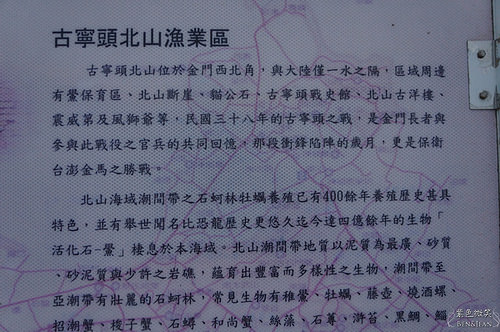 古寧頭北山漁業區
古寧頭北山位於金門西北角，與大陸僅一水之隔，區域周邊
有鱟保育區、北山斷崖、貓公石、古寧頭戰史館、北山古洋樓、
震威第及風獅爺等，民國三十八年的古寧頭之戰，是金門長者與
參與此戰役之官兵的共同回憶，那段衝鋒陷陣的歲月，更是保衛
台澎金馬之勝戰。
北山海域潮間帶之石蚵林牡蠣養殖已有400餘年養殖歷史甚具
特色，並有舉世聞名比恐龍歷史更悠久迄今達四億餘年的生物「
活化石-鱟」棲息於本海域。北山潮間帶地質以泥質為最廣、砂質
、砂泥質與少許之岩礁，蘊育出豐富而多樣性之生物，潮間帶至
亞潮帶有壯麗的石蚵林，常見生物有稚鱟、牡蠣、藤壺、燒酒螺、
招潮蟹、梭子蟹、石蟳、和尚蟹、絲藻、石蓴、滸苔、黑鯛、鯔
紫色微笑
BEN&JEAN